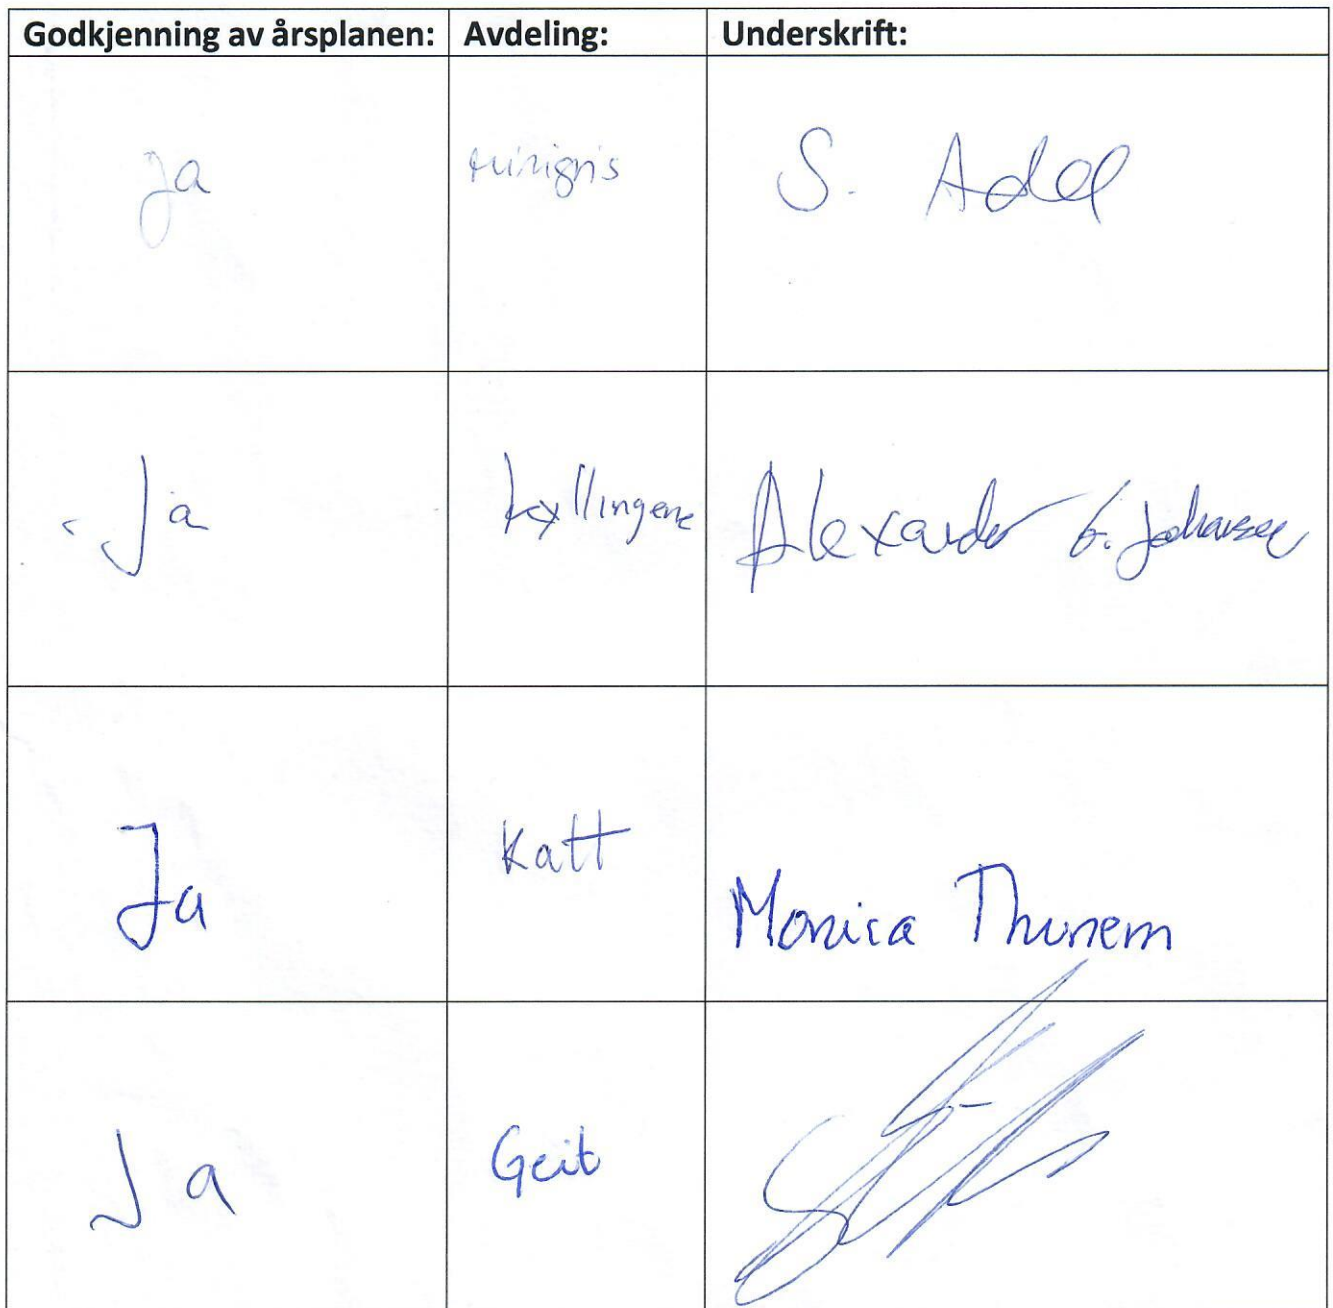 Godkjenning av årsplanen: Avdeling: Underskrift:
Ja Minigris S. Adel
Ja Kyllingene Alexander G. Johansen
Ja Katt Monica Thunem
Ja Geit